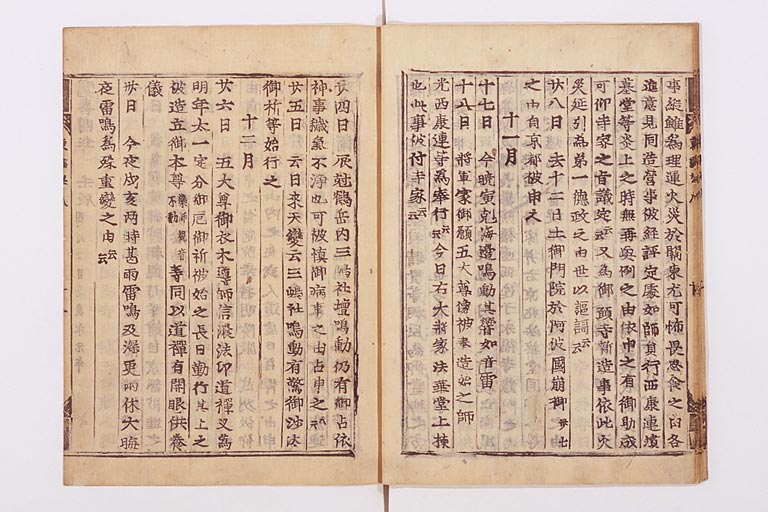 事縱雖為理運火災於關東尤可怖畏思食之旨各
進意見同造營事被經評定處如師員行西康連濱
墓堂等炎上之時無再興例之由依申之有御助成
可仰寺家之旨議定云云又為御願寺新造事依此火
災延引為第一德政之由世以謳謌云云
廿八日 去十一日土御門院於阿波國崩御 卅七
之由自京都被申之
十一月
十七日 今曉寅剋海邊鳴動其響如音雷
十八日 將軍家御願五大尊像被奉造始之師
光西康連等為奉行云云今日右大將家法華堂上棟
也此事被付寺家云云
廿四日 辰剋鶴岳内三嶋社壇鳴動仍有御占依
神事穢氣不淨也可被慎御病事之由占申之云云
廿五日 云日來天變云三嶋社鳴動有驚御沙汰
御祈等始行之
十二月
廿六日 五大尊御衣木導師信濃法印道禪又為
明年太一定分御厄御祈被始之長日勤行其上之
被造立御本尊 藥師觀音不動 等同以道禪有開眼供養
儀
卅日 今夜戌亥兩時甚雨雷鳴及深更雨休大晦
夜雷鳴為殊重變之由云云